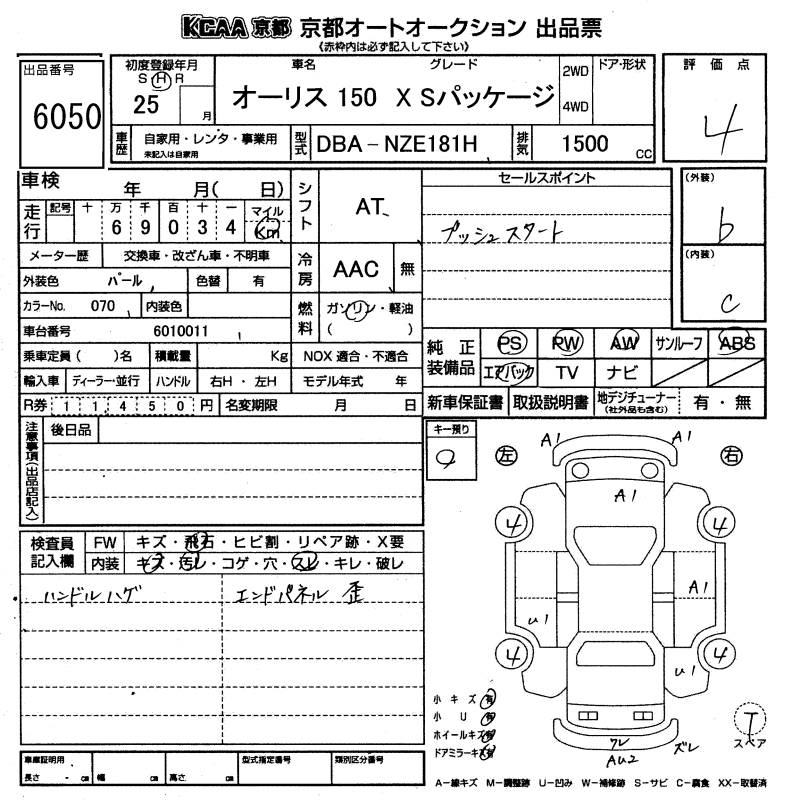 KCAA 京都 京都オートオークション 出品票
《赤枠内は必ず記入して下さい》
出品番号
6050
初度登録年月
S H R
25 月
車名 グレード
オーリス 150 X Sパッケージ
2WD
4WD
ドア・形状
評価点
4
車歴
自家用・レンタ・事業用
未記入は自家用
型式
DBA-NZE181H
排気
1500 CC
車検 年 月( 日)
走行
記号 十 万 千 百 十 一 マイル
6 9 0 3 4 Km
シフト
AT
セールスポイント
プッシュスタート
(外装)
b
(内装)
c
メーター歴 交換車・改ざん車・不明車
外装色 パール 色替 有
冷房
AAC 無
カラーNo. 070 内装色
燃料
ガソリン・軽油
( )
車台番号 6010011
乗車定員( )名 積載量 Kg NOX 適合・不適合
輸入車 ディーラー・並行 ハンドル 右H・左H モデル年式 年
R券 1 1 4 5 0 円 名変期限 月 日
純正装備品
PS PW AW サンルーフ ABS
エアバック TV ナビ
新車保証書 取扱説明書 地デジチューナー (社外品も含む) 有・無
注意事項(出品店記入)
後日品
キー預り
2
左 右
A1 A1
A1
4 4
A1
U1
4 4
U1
ワレ
AU2
ズレ
検査員記入欄
FW キズ・飛石・ヒビ割・リペア跡・X要
内装 キズ・汚レ・コゲ・穴・スレ・キレ・破レ
ハンドルハゲ
エンドパネル 歪
小キズ 有
小U 有
ホイールキズ 有
ドアミラーキズ 有
T
スペア
車庫証明用
長さ - cm 幅 cm 高さ cm
型式指定番号 類別区分番号
A-線キズ M-調整跡 U-凹み W-補修跡 S-サビ C-腐食 XX-取替済